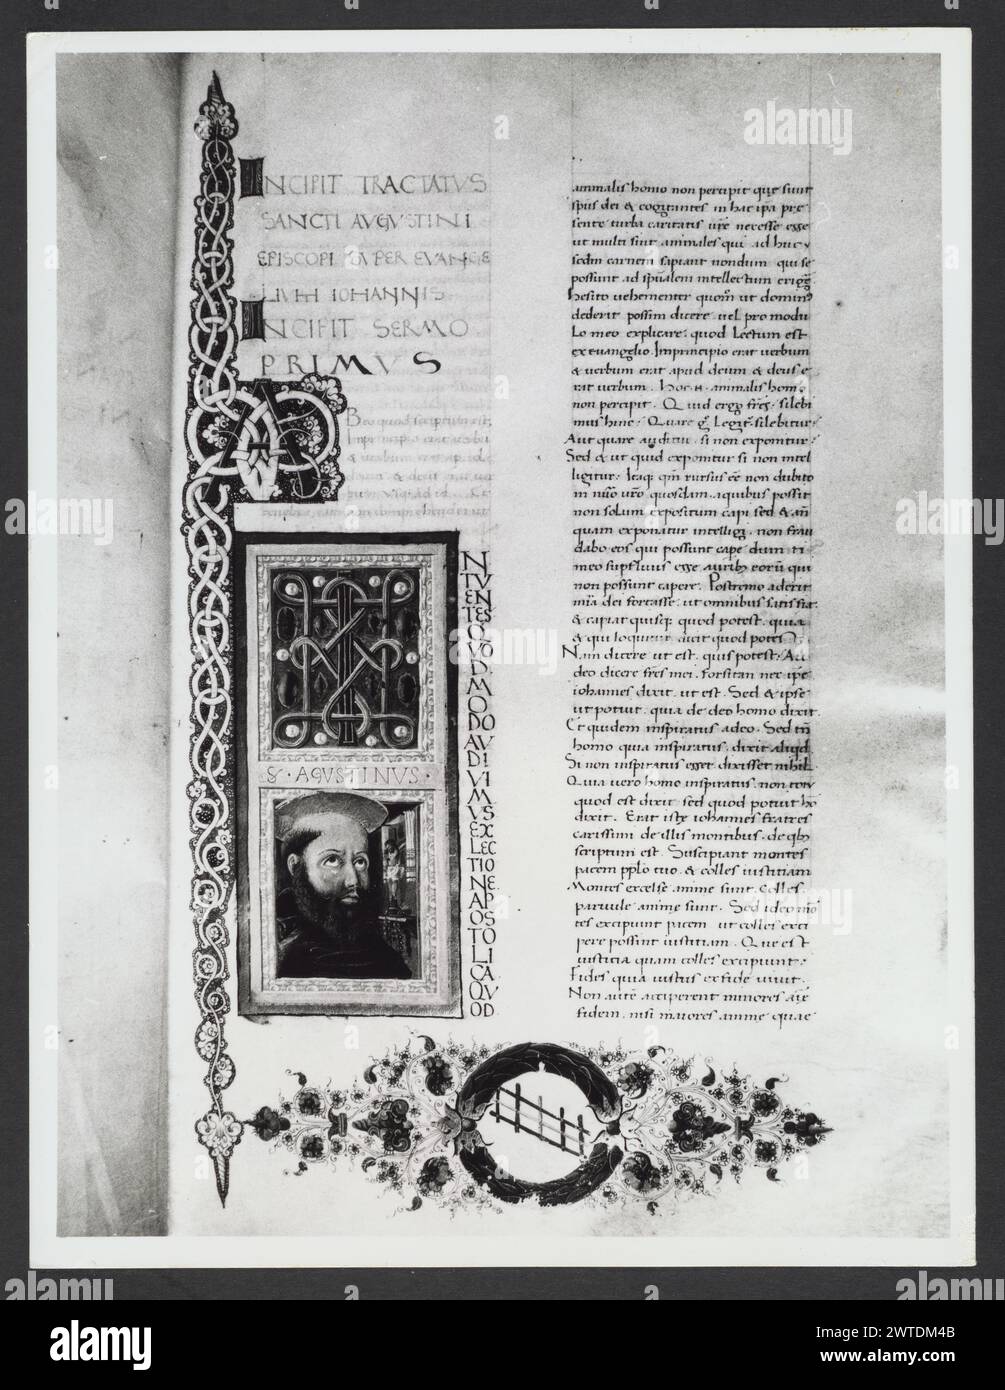 INCIPIT TRACTATVS
SANCTI AVGVSTINI
EPISCOPI SVPER EVANGE
LIVM IOHANNIS
INCIPIT SERMO
PRIMVS
S · AGVSTINVS ·
N
TV
EN
TES
Q
VO
D
MO
DO
AV
DI
VI
MV
S
EX
LEC
TIO
NE
AP
OS
TO
LI
CA
QV
OD
animalis homo non percipit que sunt
spūs dei & cogitantes in hac ip̄a pre
sente turba caritatis ur̄e necesse esse
ut multi sint animales qui adhuc
sedm carnem sapiant nondum qui se
possunt ad spūalem intellectum
hesito uehementer quom̄ ut domin
dederit possim dicere uel pro modu
lo meo explicare quod lectum est
ex euangelio. Inprincipio erat uerbum
& uerbum erat apud deum & deus e
rat uerbum. Hoc animalis homo
non percipit. Quid ergo fr̄es silebi
mus hinc Quare legit silebitur
Aut quare auditur si non exponitur
Sed & ut quid exponitur si non intel
ligitur Itaq; qm̄ rursus eē non dubito
in nūo ur̄o quosdam aquibus possit
non solum expositum capi sed &
quam exponatur intelligi non frau
dabo eos qui possunt cape dum ti
meo supfluus esse auribus eorū qui
non possunt capere. Postremo aderit
mīa dei fortasse ut omnibus satis fiat
& capiat quisq; quod potest quia
& qui loquitur dicit quod potest
Nam dicere ut est quis potest Au
deo dicere fr̄es mei forsitan nec ip̄e
iohannes dixit ut est Sed & ipse
ut potuit quia de deo homo dixit
Et quidem inspiratus adeo Sed tn̄
homo quia inspiratus dixit aliqd
Si non inspiratus esset dixisset nihil
Quia uero homo inspiratus non totū
quod est dixit sed quod potuit hō
dixit. Erat iste iohannes fratres
carissimi de illis montibus de qb̄
scriptum est Suscipiant montes
pacem pplo tuo & colles iustitiam
Montes excelse anime sunt Colles
paruule anime sunt Sed ideo mō
tes excipiunt pacem ut colles exci
pere possint iustitiam Que est
iustitia quam colles excipiunt
Fides quia iustus ex fide uiuit
Non autē acciperent minores aīe
fidem nisi maiores anime quae
alamy
Image ID: 2WTDM4B
www.alamy.com